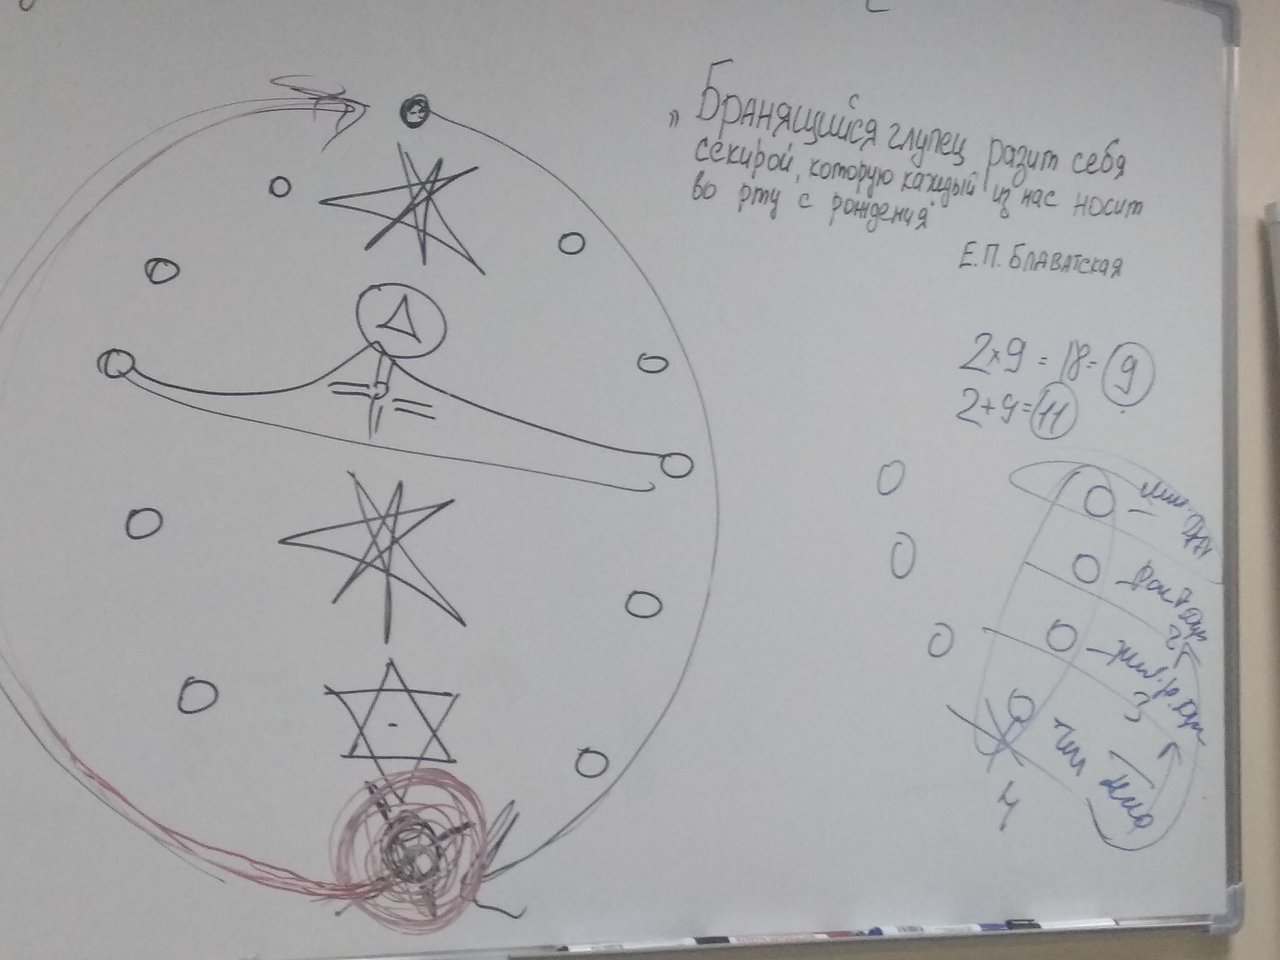 „Бранящийся глупец разит себя
секирой, которую каждый из нас носит
во рту с рождения"
Е.П. Блаватская
2×9 = 18 = 9
2+9 = 11
4